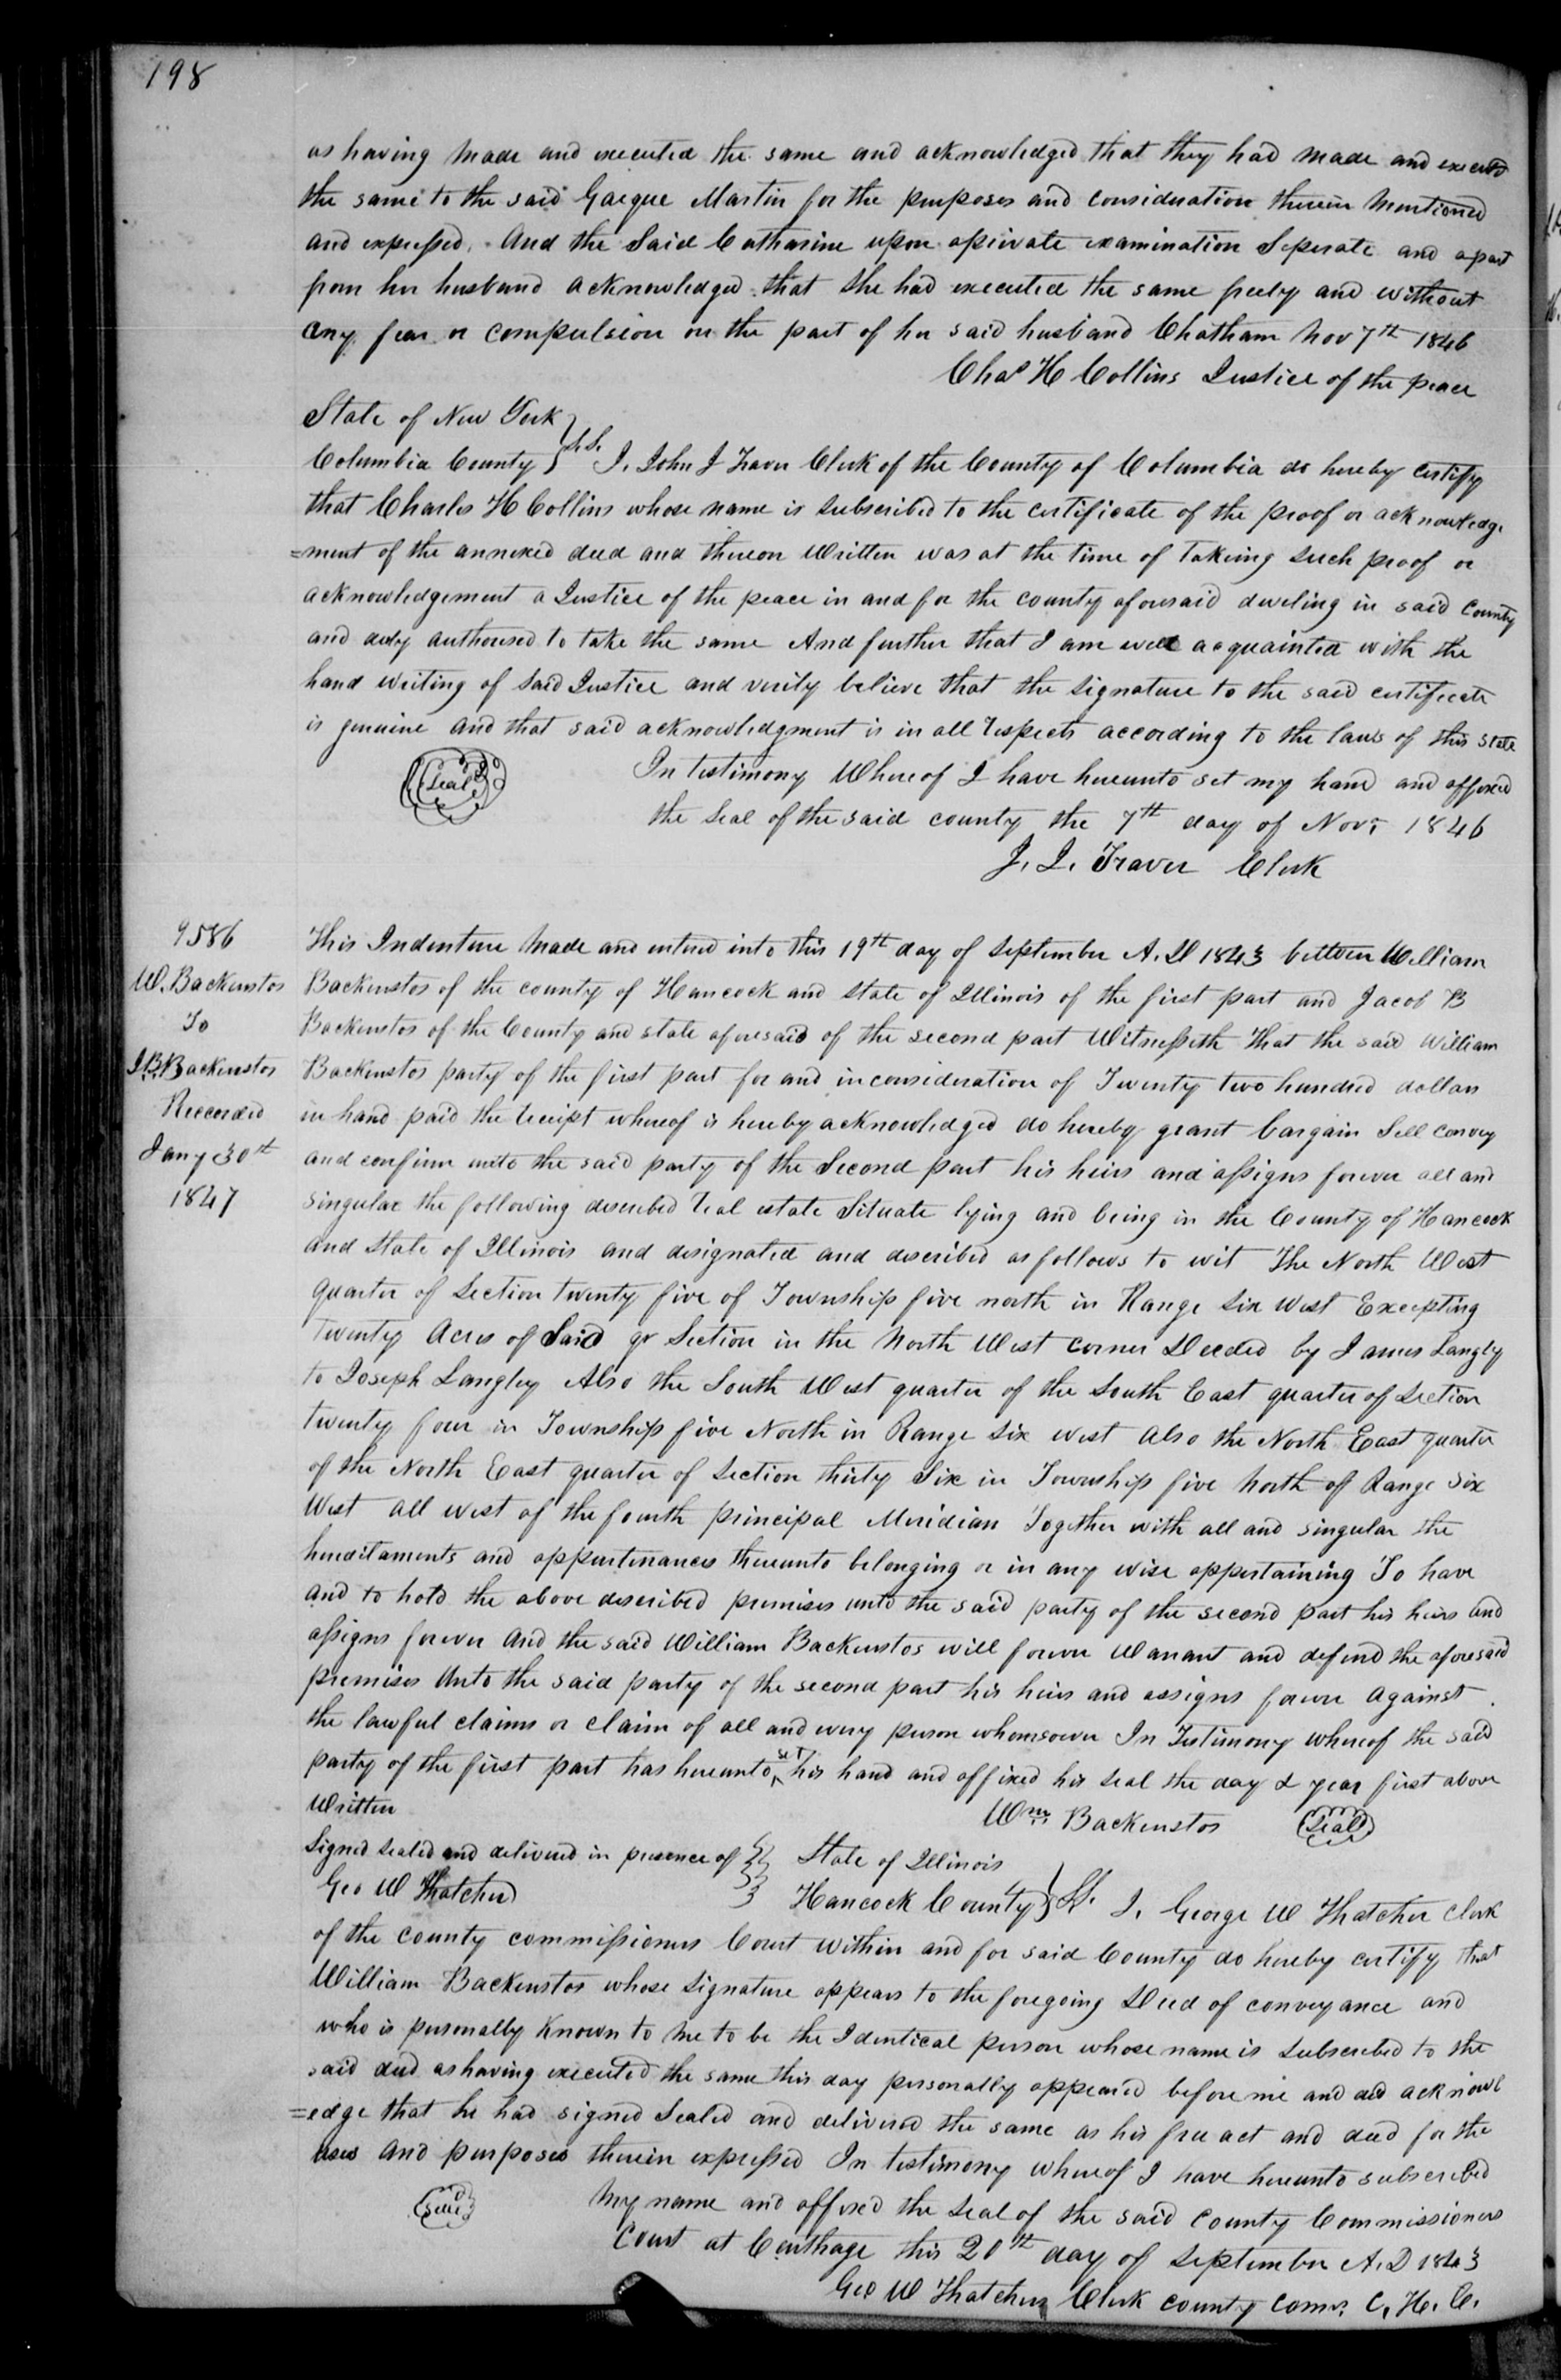 198
as having made and executed the same and acknowledged that they had made and executed
the same to the said Gaeque Martin for the purposes and consideration therein mentioned
and expressed. And the Said Catharine upon aprivate examination Seperate and apart
from her husband acknowledged that she had executed the same freely and without
any fear or compulsion on the part of her said husband Chatham Nov 7th 1846
Chas H Collins Justice of the peace
State of New York
Columbia County } S.S. I, John J Traver Clerk of the County of Columbia do hereby certify
that Charles H Collins whose name is subscribed to the certificate of the proof or acknowledge
=ment of the annexed deed and thereon Written was at the time of takeing such proof or
acknowledgement a Justice of the peace in and for the county aforesaid dweling in said County
and duly authorised to take the same And further that I am well acquainted with the
hand writing of said Justice and verily believe that the signature to the said certificate
is genuine and that said acknowledgment is in all respects according to the laws of this state
Seal In testimony Whereof I have hereunto set my hand and affixed
the seal of the said county the 7th day of Novr 1846
J. J. Traver Clerk
9586
W. Backenstos
To
J.B. Backenstos
Recorded
Jany 30th
1847
This Indenture Made and entered into this 19th day of September A.D 1843 between William
Backenstos of the county of Hancock and state of Illinois of the first part and Jacob B
Backenstos of the County and state aforesaid of the second part Witnesseth That the said William
Backenstos party of the first part for and in consideration of Twenty two hundred dollars
in hand paid the receipt whereof is hereby acknowledged do hereby grant bargain Sell convey
and confirm unto the said party of the Second part his heirs and assigns forever all and
singular the following described real estate Situate lying and being in the County of Hancock
and State of Illinois and designated and described as follows to wit The North West
quarter of Section twenty five of Township five north in Range six West Excepting
twenty Acres of Said qr Section in the North West corner Deeded by James Langley
to Joseph Langley Also the South West quarter of the South East quarter of Section
twenty four in Township five North in Range six west also the North East quarter
of the North East quarter of Section thirty Six in Township five North of Range six
West all west of the fourth principal Meridian Together with all and singular the
hereditaments and appurtenances thereunto belonging or in any wise appertaining To have
and to hold the above described premises unto the said party of the second part his heirs and
assigns forever And the said William Backenstos will forever Warrant and defend the aforesaid
premises Unto the said party of the second part his heirs and assigns forever against
the lawful claims or claim of all and every person whomsoever In Testimony whereof the said
party of the first part has hereunto set his hand and affixed his seal the day & year first above
Written Wm Backenstos Seal
Signed sealed and delivered in presence of } State of Illinois
Geo W Thatcher } Hancock County } SS. I, George W Thatcher Clerk
of the county commissioners Court within and for said County do hereby certify that
William Backenstos whose signature appears to the foregoing Deed of conveyance and
who is personally known to me to be the Identical person whose name is subscribed to the
said deed as having executed the same this day personally appeared before me and did acknowl
=edge that he had signed Sealed and delivered the same as his free act and deed for the
uses and purposes therein expressed In testimony whereof I have hereunto subscribed
Seal My name and affixed the seal of the said County Commissioners
Court at Carthage this 20th day of September A.D 1843
Geo W Thatcher Clerk county Comrs. C. H. C.